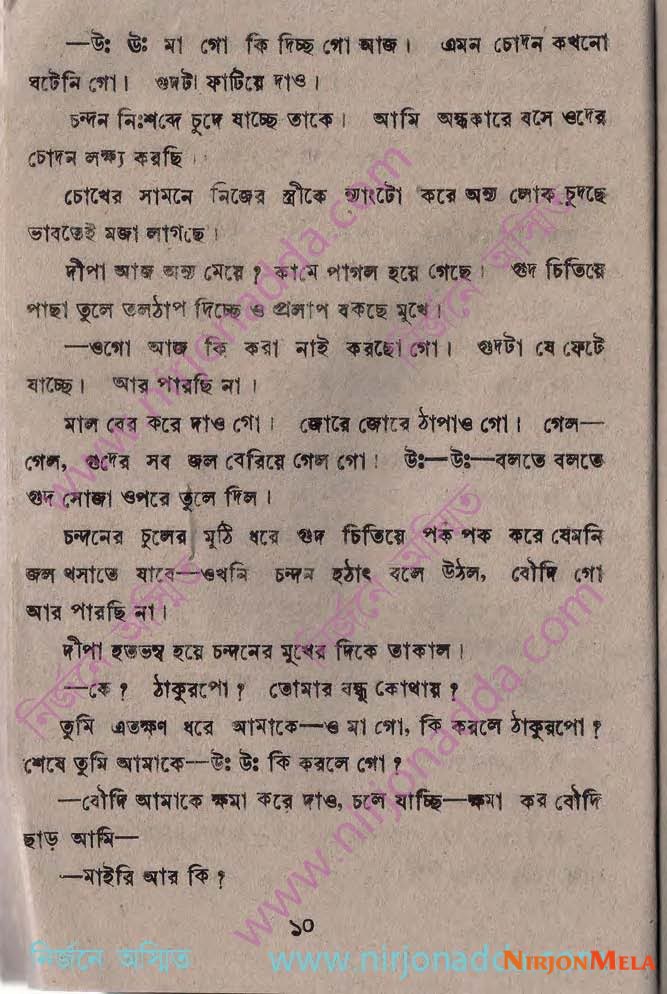 —উঃ ঊঃ মা গো কি দিচ্ছ গো আজ। এমন চোদন কখনো
ঘটেনি গো। গুদটা ফাটিয়ে দাও।
চন্দন নিঃশব্দে চুদে যাচ্ছে তাকে। আমি অন্ধকারে বসে ওদের
চোদন লক্ষ্য করছি।
চোখের সামনে নিজের স্ত্রীকে ন্যাংটো করে অন্য লোক চুদছে
ভাবতেই মজা লাগছে।
দীপা আজ অন্য মেয়ে? কামে পাগল হয়ে গেছে। গুদ চিতিয়ে
পাছা তুলে তলঠাপ দিচ্ছে ও প্রলাপ বকছে মুখে।
—ওগো আজ কি করা নাই করছো গো। গুদটা যে ফেটে
যাচ্ছে। আর পারছি না।
মাল বের করে দাও গো। জোরে জোরে ঠাপাও গো। গেল—
গেল, গুদের সব জল বেরিয়ে গেল গো! উঃ—উঃ—বলতে বলতে
গুদ সোজা ওপরে তুলে দিল।
চন্দনের চুলের মুঠি ধরে গুদ চিতিয়ে পক পক করে যেমনি
জল খসাতে যাবে—ওখনি চন্দন হঠাৎ বলে উঠল, বৌদি গো
আর পারছি না।
দীপা হতভম্ব হয়ে চন্দনের মুখের দিকে তাকাল।
—কে? ঠাকুরপো? তোমার বন্ধু কোথায়?
তুমি এতক্ষণ ধরে আমাকে—ও মা গো, কি করলে ঠাকুরপো?
শেষে তুমি আমাকে—উঃ উঃ কি করলে গো?
—বৌদি আমাকে ক্ষমা করে দাও, চলে যাচ্ছি—ক্ষমা কর বৌদি
ছাড় আমি—
—মাইরি আর কি?
১০
নির্জনে অস্মিত www.nirjonadd NIRJONMELA
www.nirjonadda.com নির্জনে অস্মিত
নির্জনে অস্মিত নির্জনে অস্মিত
www.nirjonadda.com